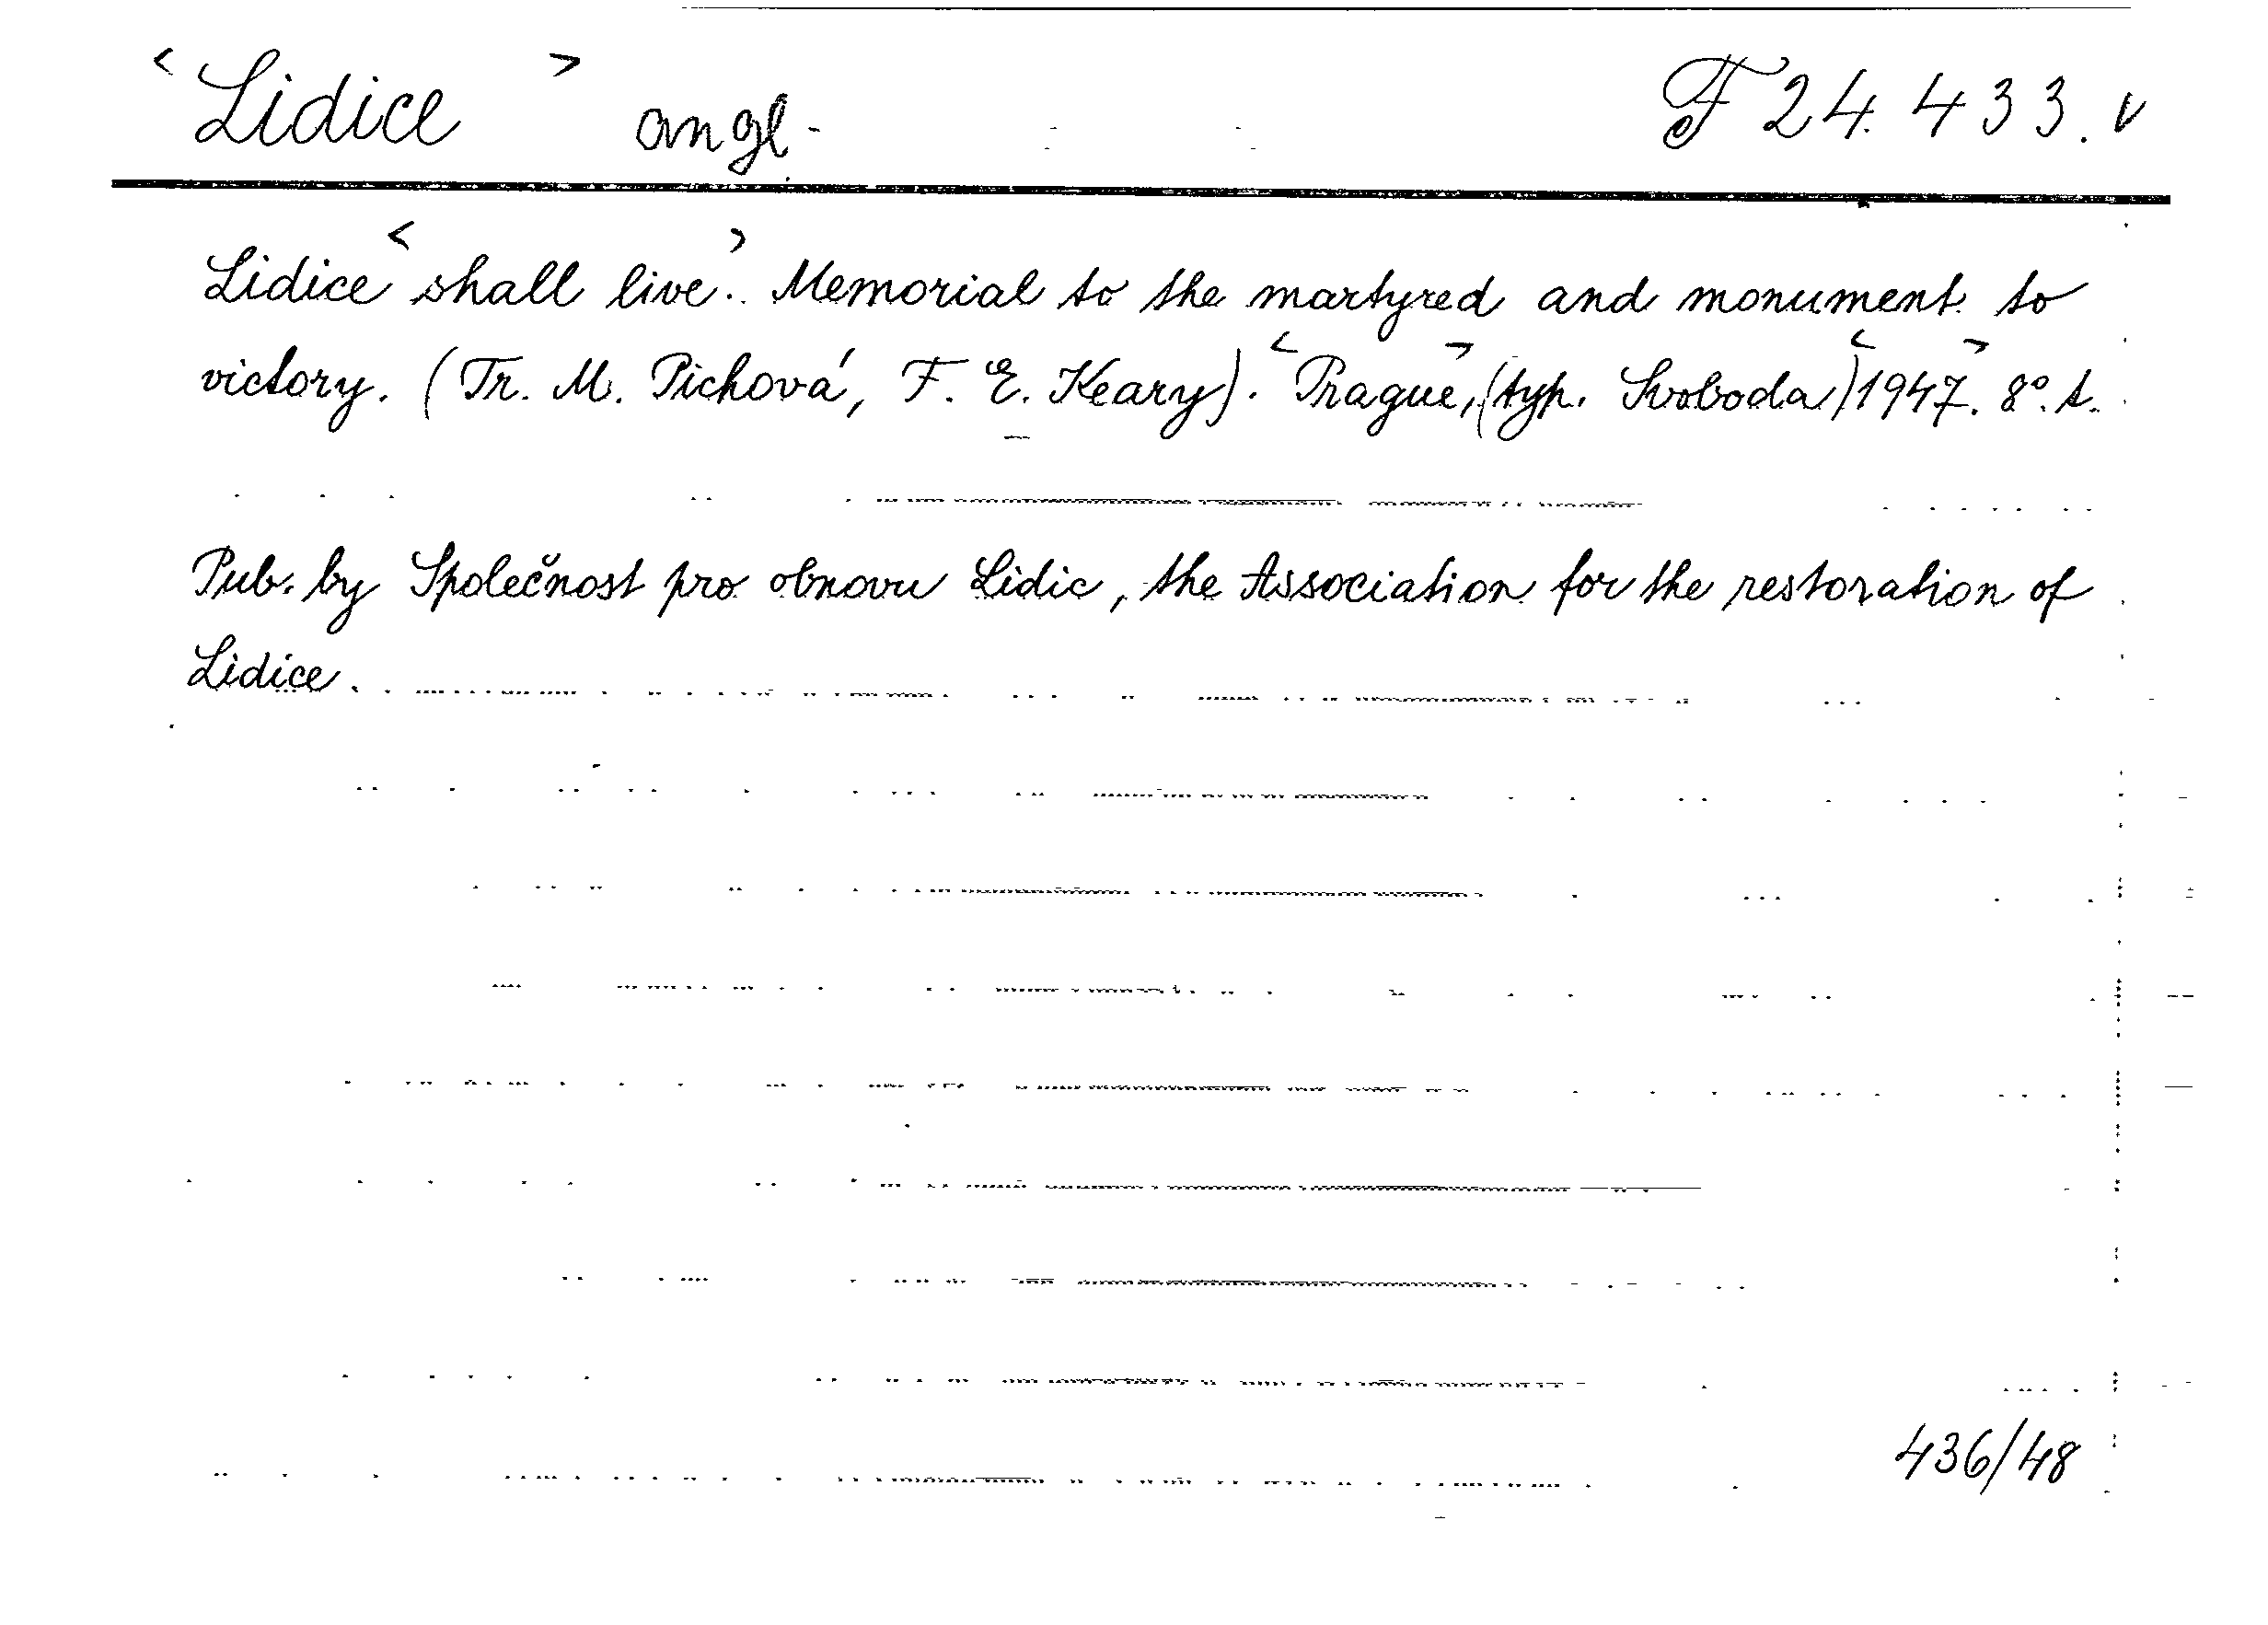 <Lidice> angl. F 24.433. v
Lidice <shall live>. Memorial to the martyred and monument to
victory. (Tr. M. Pichová, F. E. Keary). <Prague>, (typ. Svoboda) <1947>. 8°. t.
Pub. by Společnost pro obnovu Lidic, the Association for the restoration of
Lidice.
436/48